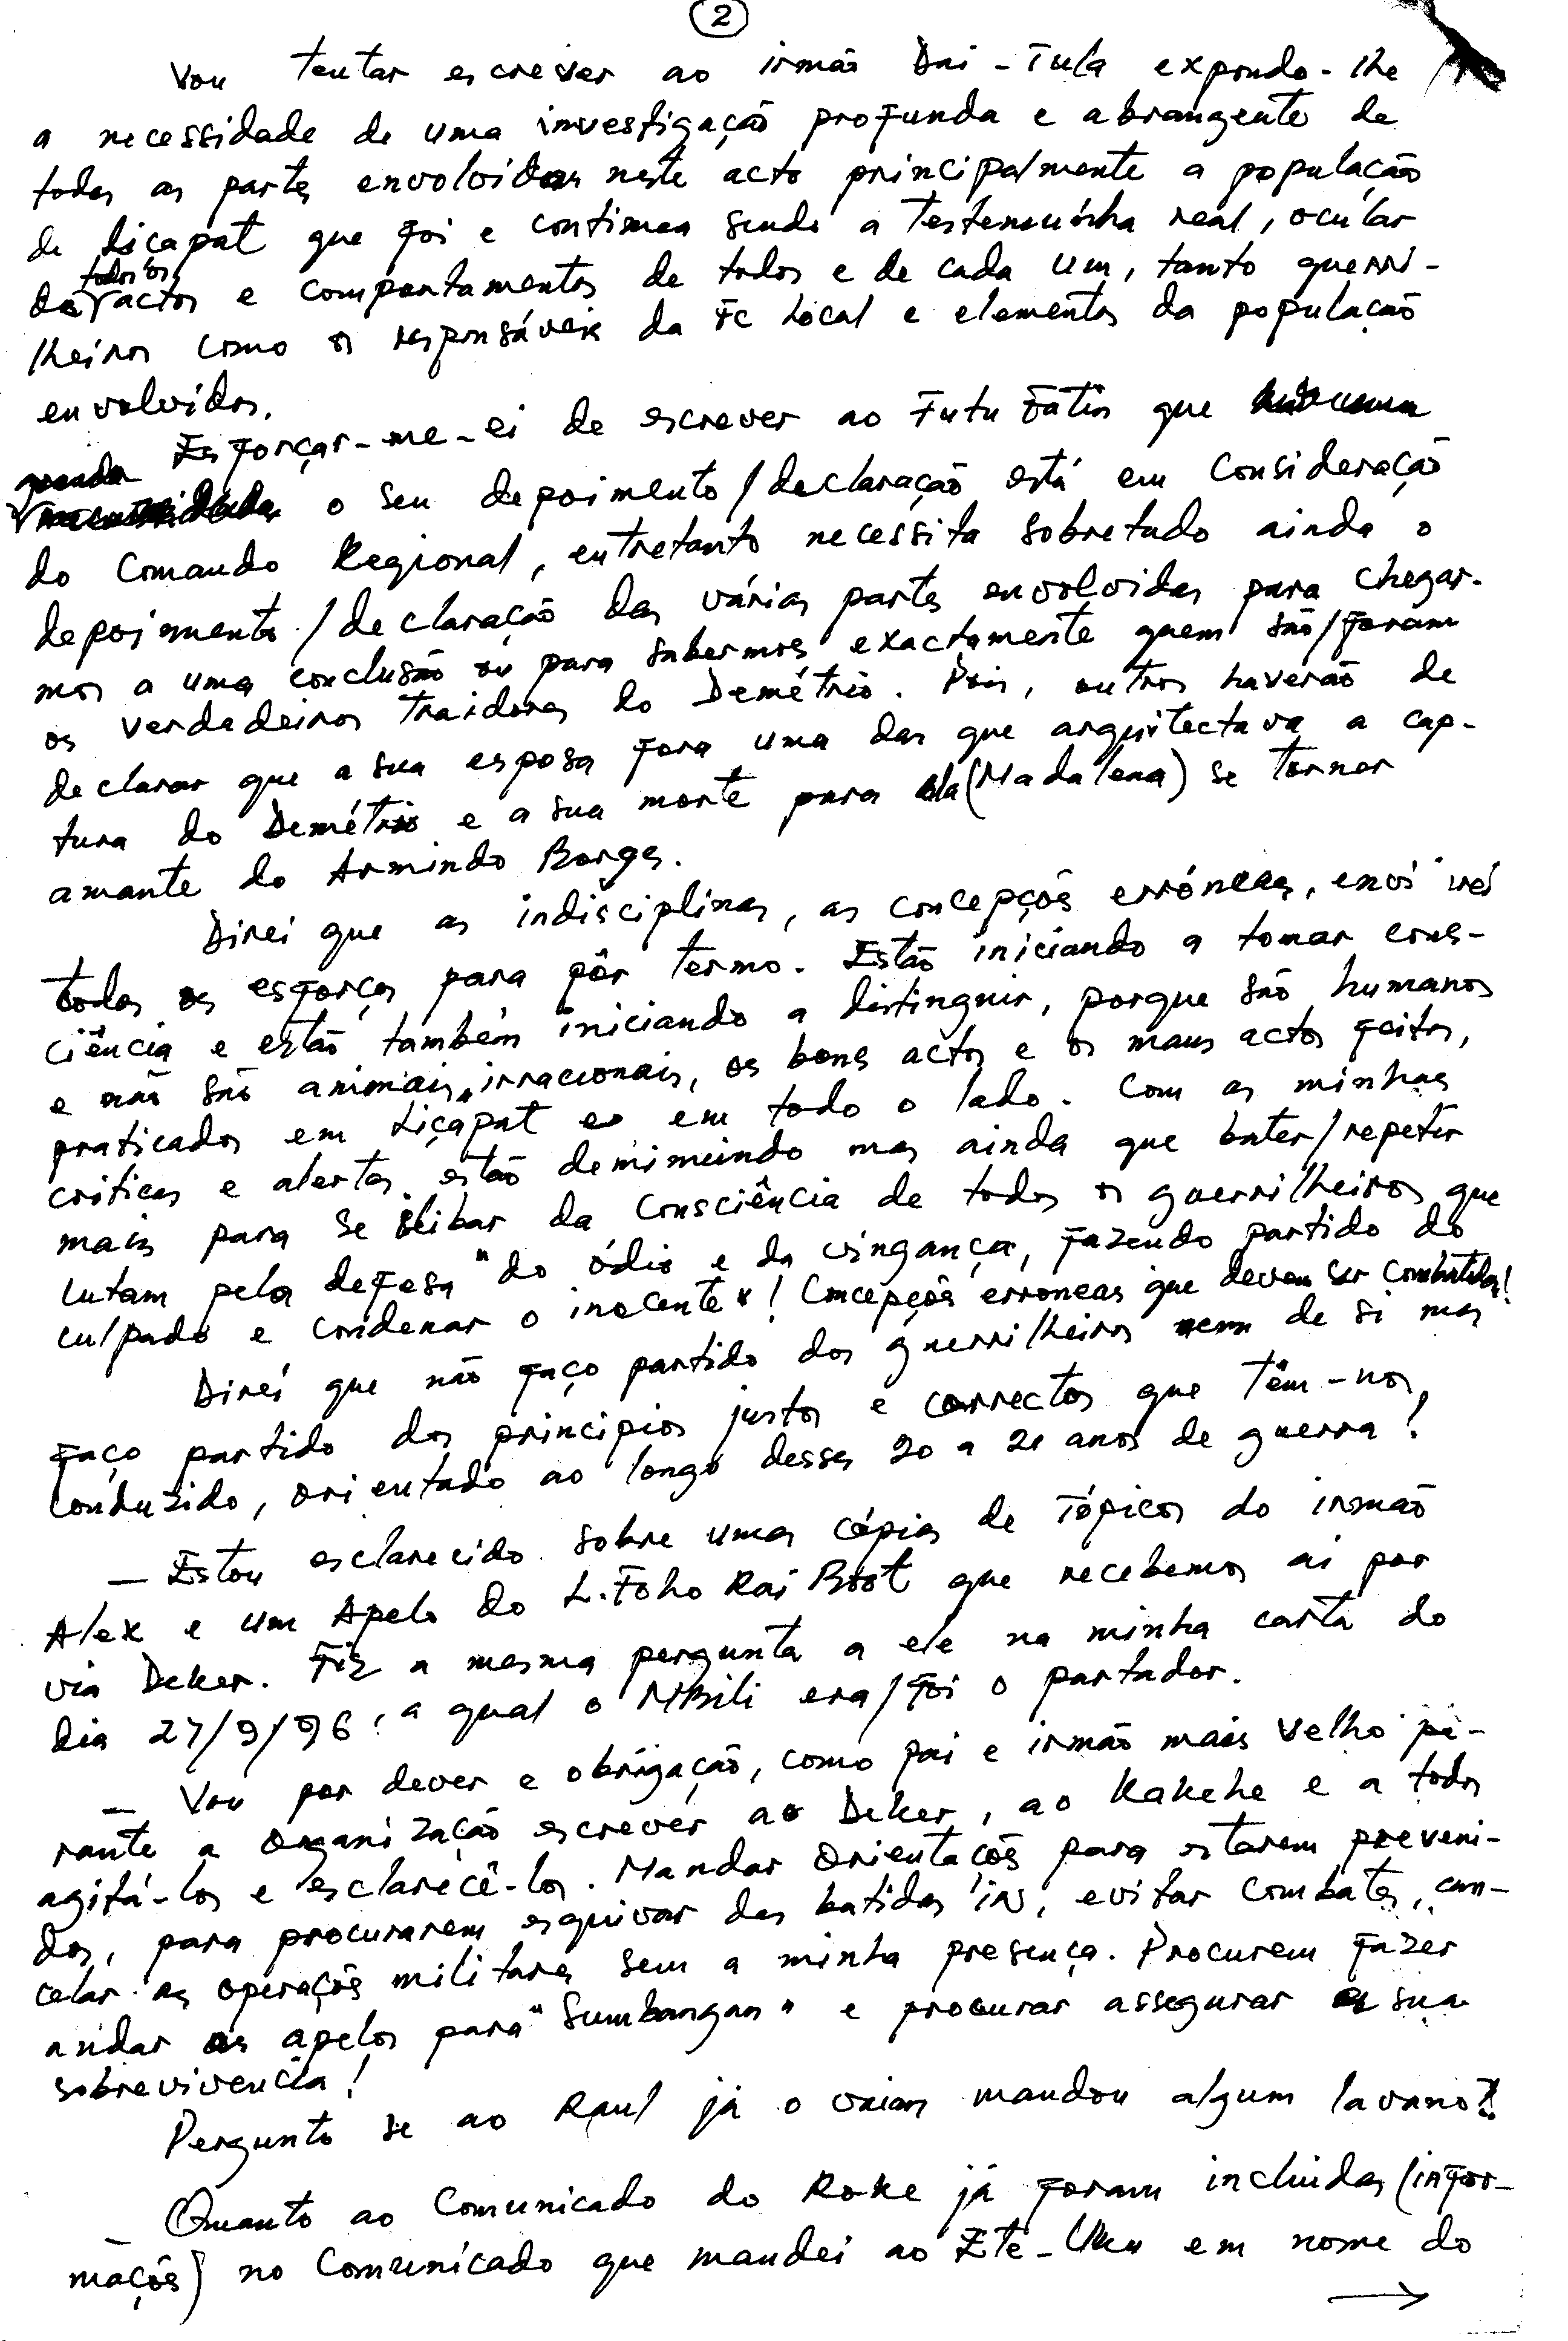 2
Vou tentar escrever ao irmão Dai-Tula expondo-lhe
a necessidade de uma investigação profunda e abrangente de
todas as partes envolvidas neste acto principalmente a população
de Liçapat que foi e continua sendo a testemunha real, ocular
de todos os factos e comportamentos de todos e de cada um, tanto guerri-
lheiros como os responsáveis da FC Local e elementos da população
envolvidos.
Esforçar-me-ei de escrever ao Futu Fatin que
o seu depoimento/declaração está em consideração
do Comando Regional, entretanto necessita sobretudo ainda o
depoimento/declaração das várias partes envolvidas para chegar-
mos a uma conclusão ou para sabermos exactamente quem são/foram
os verdadeiros traidores do Demétrio. Pois, outros haverão de
declarar que a sua esposa fora uma das que arquitectava a cap-
tura do Demétrio e a sua morte para ela (Madalena) se tornar
amante do Armindo Borges.
Direi que as indisciplinas, as concepções erróneas, envi
todos os esforços para pôr termo. Estão iniciando a tomar cons-
ciência e estão também iniciando a distinguir, porque são humanos
e não são animais irracionais, os bons actos e os maus actos feitos,
praticados em Liçapat e em todo o lado. Com as minhas
críticas e alertas estão demimuindo mas ainda que bater/repetir
mais para se ilibar da consciência de todos os guerrilheiros que
lutam pela defesa "do ódio e da vingança, fazendo partido do
culpado e condenar o inocente"! Concepções erroneas que devem ser combatidas!
Direi que não faço partido dos guerrilheiros nem de si mas
faço partido dos princípios justos e correctos que têm-nos
conduzido, orientado ao longo desses 20 a 21 anos de guerra!
— Estou esclarecido sobre umas cópias de Tópicos do irmão
Alex e um Apelo do L. Foho Rai Boot que recebemos aí por
via Deker. Fiz a mesma pergunta a ele na minha carta do
dia 27/9/96, a qual o MBili era/foi o portador.
— Vou por dever e obrigação, como pai e irmão mais velho pe-
rante a Organização escrever ao Deker, ao Kakehe e a todos
agitá-los e esclarecê-los. Mandar Orientações para estarem preveni-
dos, para procurarem esquivar das batidas in, evitar combates, can-
celar as operações militares sem a minha presença. Procurem fazer
andar os apelos para "Sumbangan" e procurar assegurar a sua
sobrevivencia!
Pergunto se ao Raul já o mandou algum lavano?
— Quanto ao Comunicado do Roke já foram incluidas (infor-
mações) no Comunicado que mandei ao Ete-Uku em nome do
→